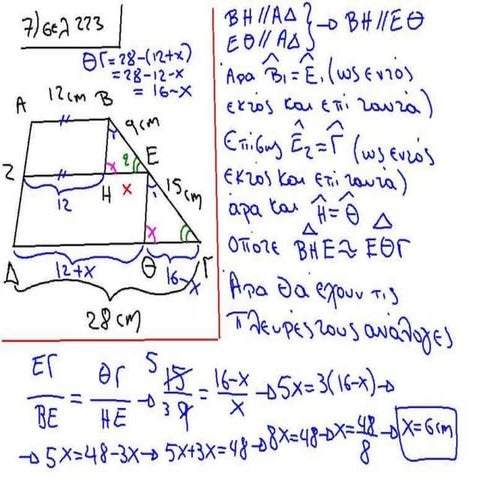 7) σελ 223
ΘΓ=28-(12+x)
=28-12-x
=16-x
A 12cm B
9cm
2 E
Z
x
H x
12
15cm
x
Δ 12+x Θ 16-x Γ
28cm
BH//AΔ
EΘ//AΔ } → BH//EΘ
Άρα B̂₁=Ê₁ (ως εντός
εκτός και επί ταυτά)
Επίσης Ê₂=Γ̂ (ως εντός
εκτός και επί ταυτά)
άρα και Ĥ=Θ̂
οπότε BHE≈EΘΓ
Άρα θα έχουν τις
πλευρές τους ανάλογες
ΕΓ/ΒΕ = ΘΓ/ΗΕ → 15/9 5/3 = 16-x/x → 5x=3(16-x) →
→ 5x=48-3x → 5x+3x=48 → 8x=48 → x=48/8 → x=6cm